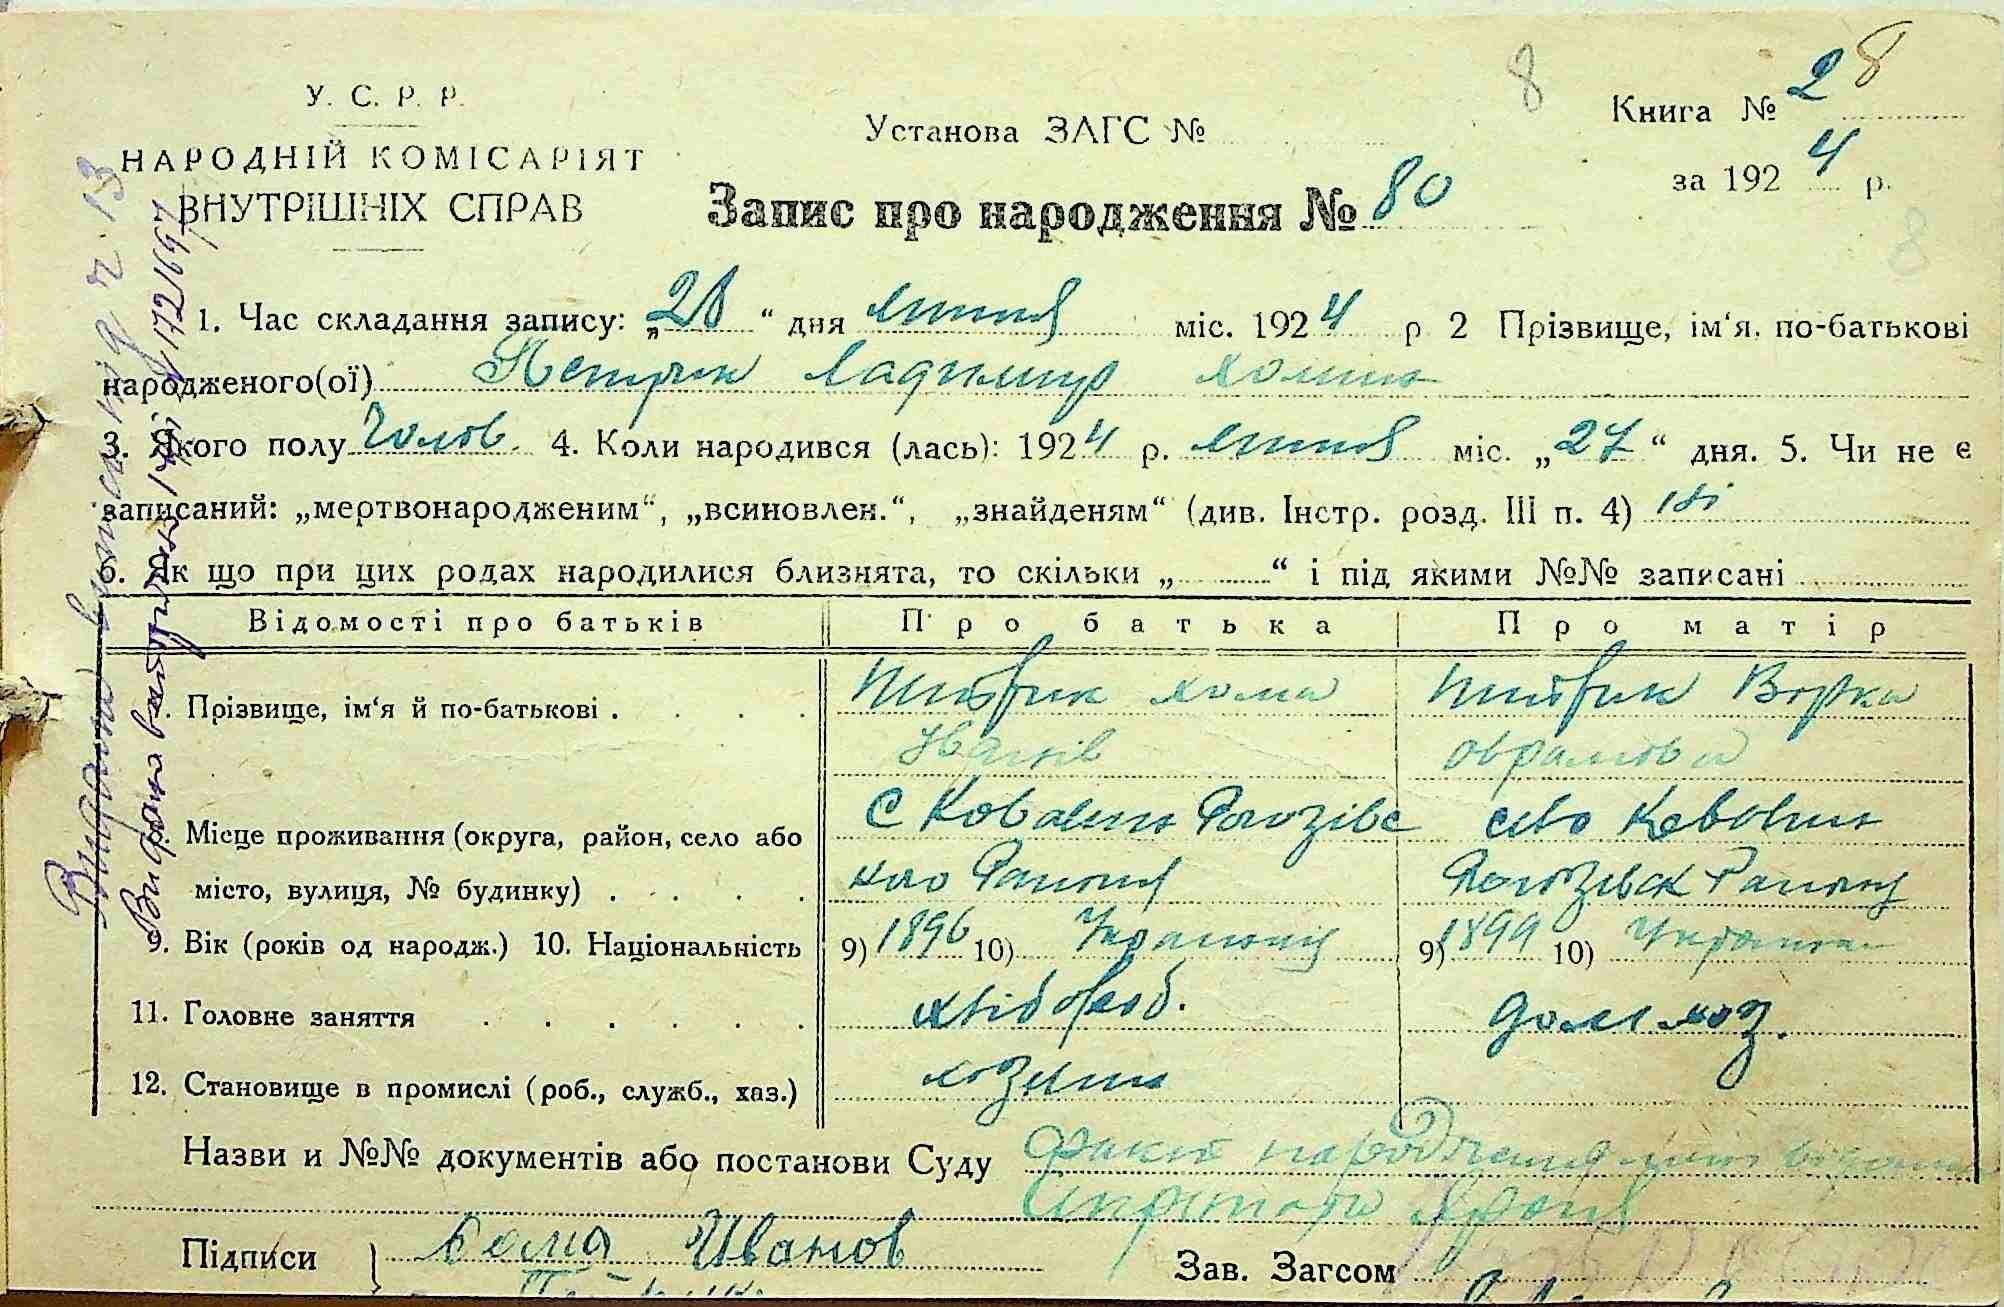 У. С. Р. Р.
НАРОДНІЙ КОМІСАРІЯТ
ВНУТРІШНІХ СПРАВ
Установа ЗАГС №
8
Книга № 2 8
за 1924 р.
Запис про народження № 80
8
1. Час складання запису: „28“ дня липня міс. 1924 р 2 Прізвище, ім‘я, по-батькові
народженого(ої) Ладимир Хомин
3. Якого полу чолов. 4. Коли народився (лась): 1924 р. липня міс. „27“ дня. 5. Чи не є
записаний: „мертвонародженим“, „всиновлен.“, „знайденям“ (див. Інстр. розд. III п. 4) ні
6. Як що при цих родах народилися близнята, то скільки „ “ і під якими №№ записані
Відомості про батьків Про батька Про матір
Прізвище, ім‘я й по-батькові . Хома
Іванів
Місце проживання (округа, район, село або С Ковалин село Ковалин
місто, вулиця, № будинку) . Району Району
9. Вік (років од народж.) 10. Національність 9) 1896 10) Українец 9) 1899 10) Українка
11. Головне заняття хлібороб. дом хоз.
12. Становище в промислі (роб., служб., хаз.) хозяин
Назви и №№ документів або постанови Суду факт народження
Підписи Хома Иванов
Зав. Загсом
Видана виписка під ч 13